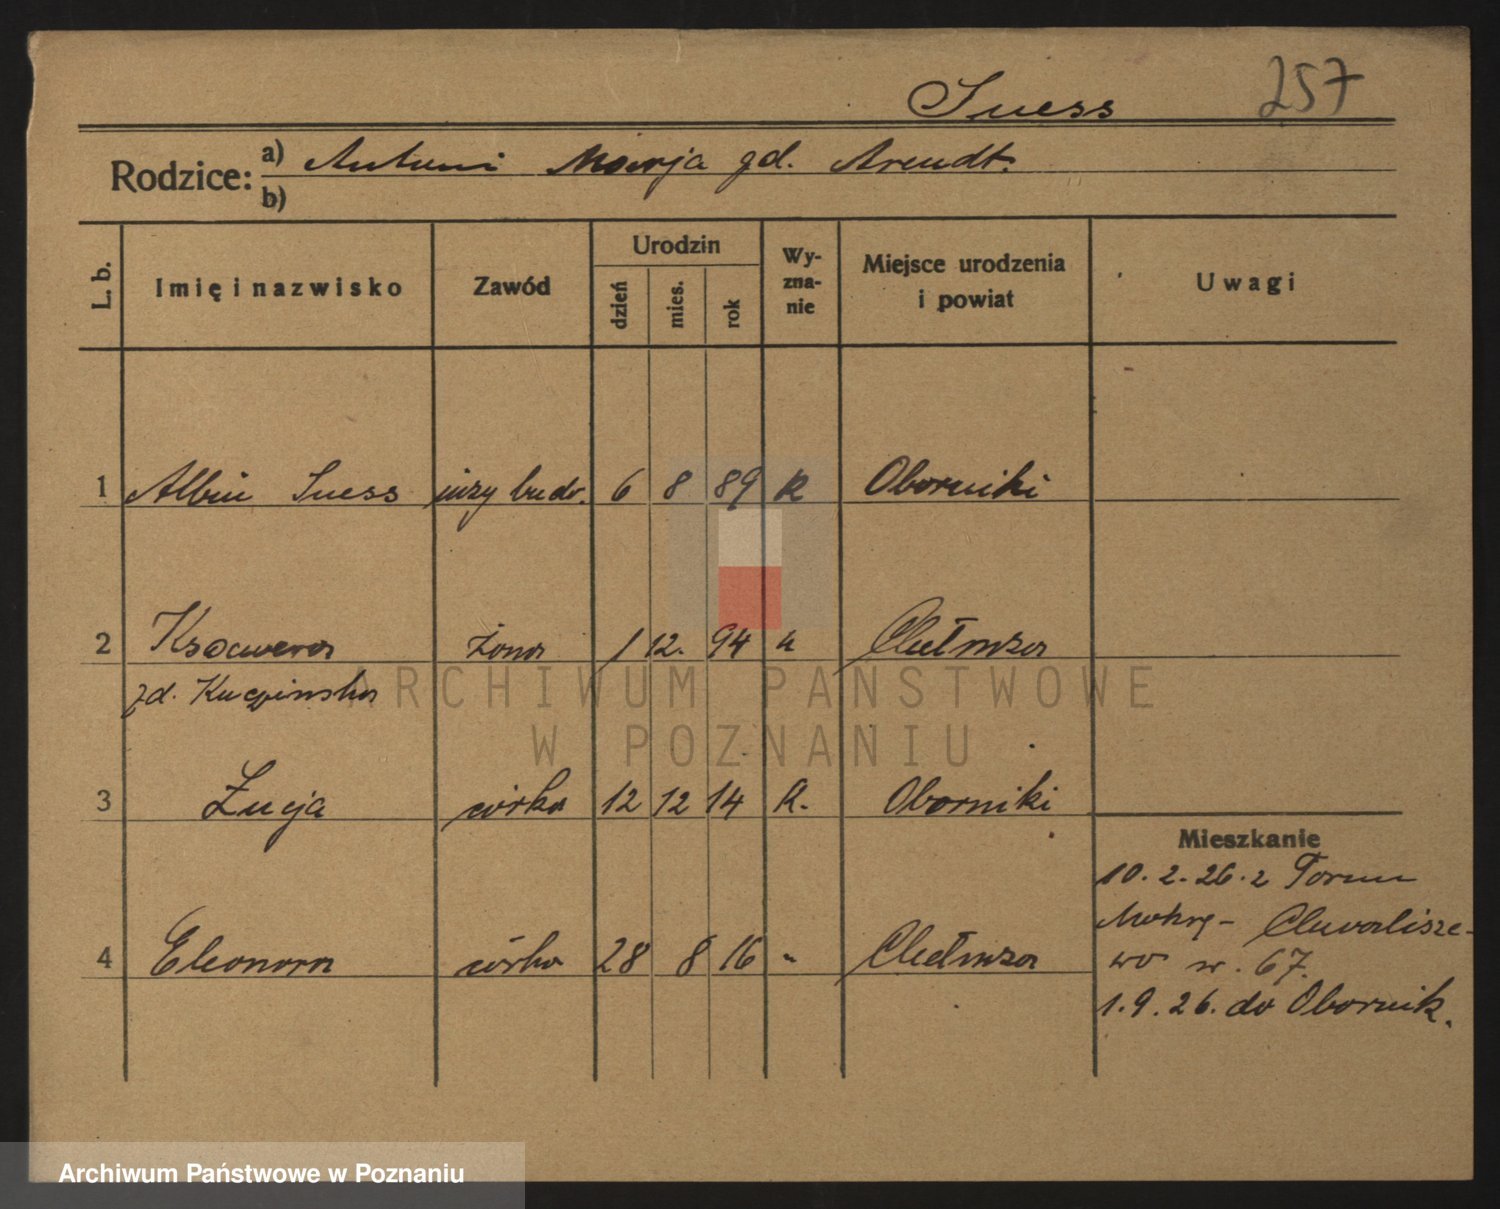 257
Suess
Rodzice: a) Antoni Marja zd. Arendt.
b)
L. b. Imię i nazwisko Zawód Urodzin dzień mies. rok Wy-zna-nie Miejsce urodzenia i powiat Uwagi
1 Albin Suess inży budr. 6 8 89 k Oborniki
2 Ksawera żona 1 12. 94 k Chełmża
zd. Kuczinska
3 Łucja córka 12 12 14 k. Oborniki
Mieszkanie
10. 2. 26. z Torun
Mokrę - Chwalisze-
4 Eleonora córka 28 8 16 " Chełmza
wo n. 67.
1. 9. 26. do Obornik.
ARCHIWUM PAŃSTWOWE
W POZNANIU
Archiwum Państwowe w Poznaniu